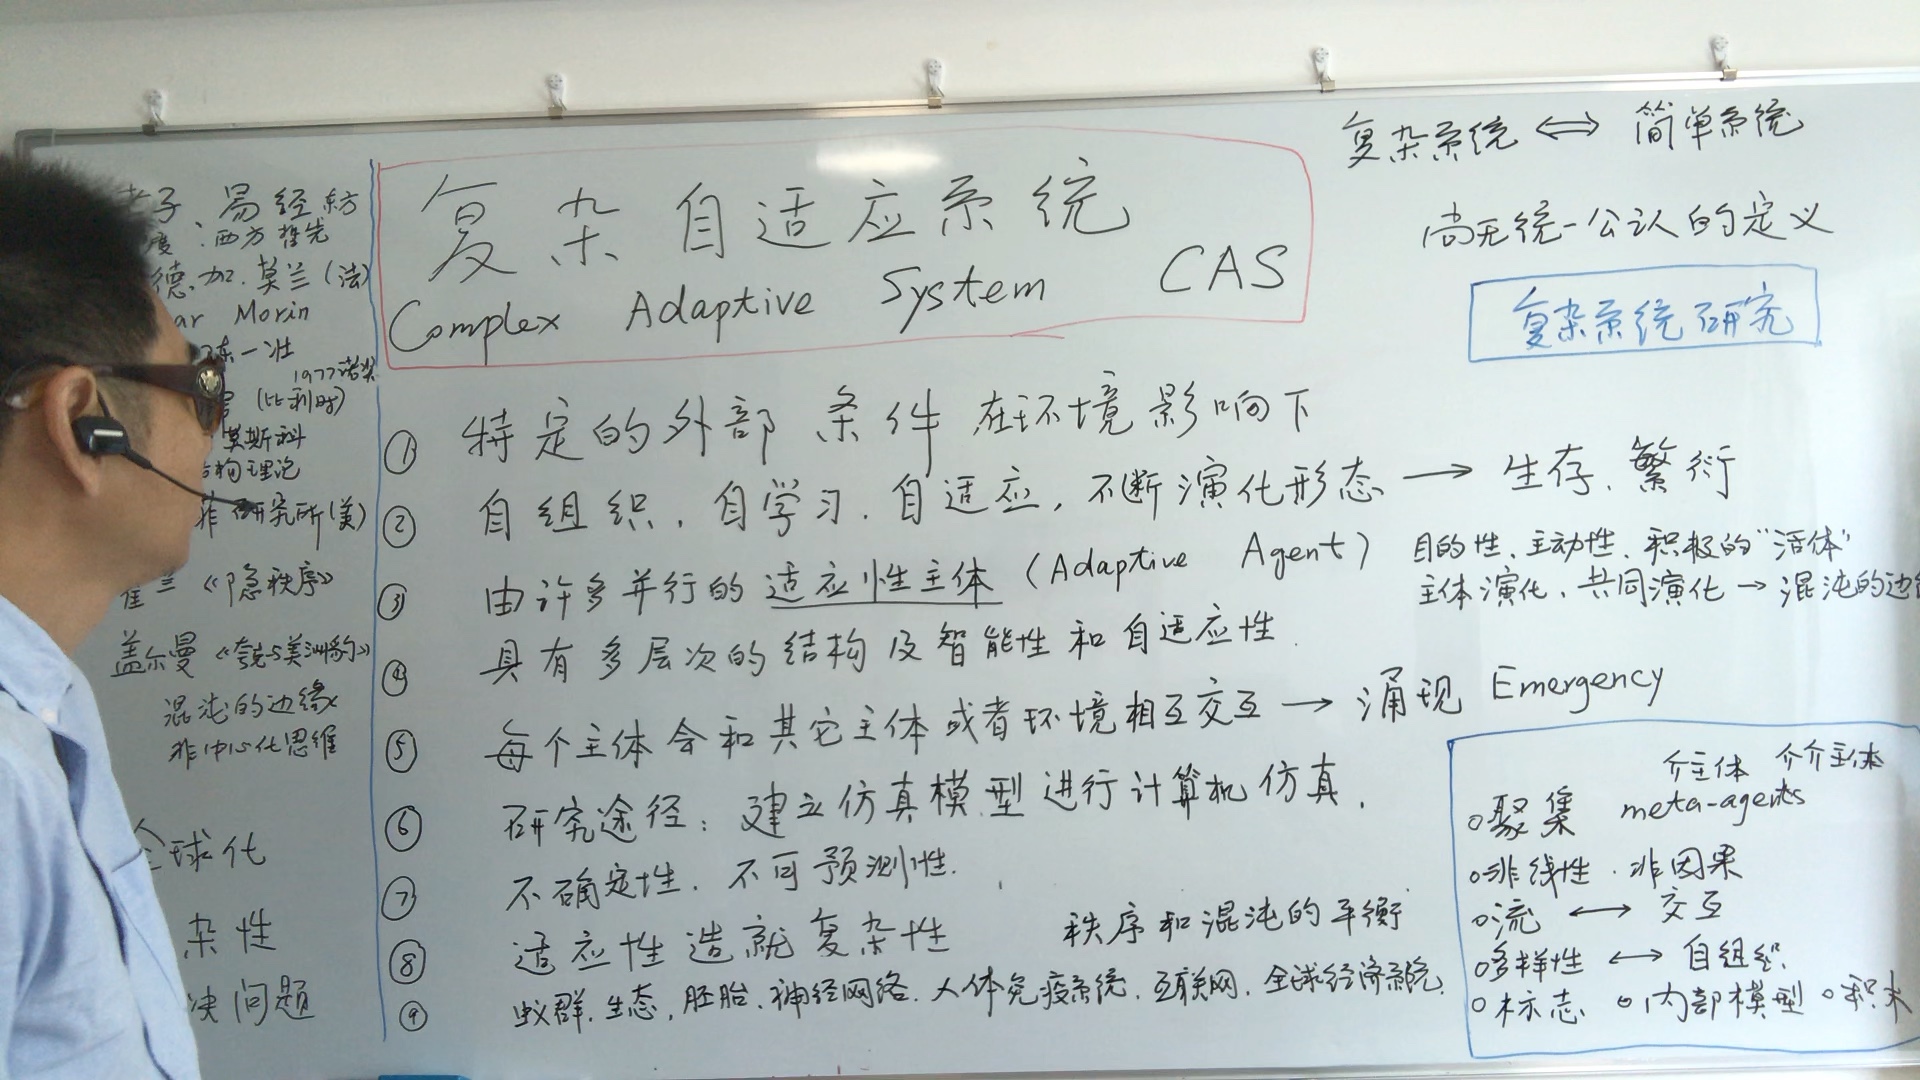 子、易经 东方
度:西方哲先
德.加.莫兰(法)
ar Morin
陈一
1977诺奖
(比利时)
莫斯科
结构理论
菲研究所(美)
霍兰《隐秩序》
盖尔曼《夸克与美洲豹》
混沌的边缘
非中心化思维
全球化
杂性
决问题
复杂自适应系统
Complex Adaptive System CAS
① 特定的外部条件 在环境影响下
② 自组织、自学习、自适应,不断演化形态 → 生存、繁衍
③ 由许多并行的适应性主体(Adaptive Agent)
目的性、主动性、积极的"活体"
主体演化、共同演化→混沌的边
④ 具有多层次的结构及智能性和自适应性.
⑤ 每个主体会和其它主体或者环境相互交互 → 涌现 Emergency
⑥ 研究途径:建立仿真模型进行计算机仿真.
⑦ 不确定性、不可预测性.
⑧ 适应性造就复杂性 秩序和混沌的平衡
⑨ 蚁群、生态、胚胎、神经网络、人体免疫系统、互联网、全球经济系统.
复杂系统 ⇔ 简单系统
尚无统一公认的定义
复杂系统研究
介主体 介介主体
o聚集 meta-agents
o非线性.非因果
o流 ↔ 交互
o多样性 ↔ 自组织.
o标志 o内部模型 o积木